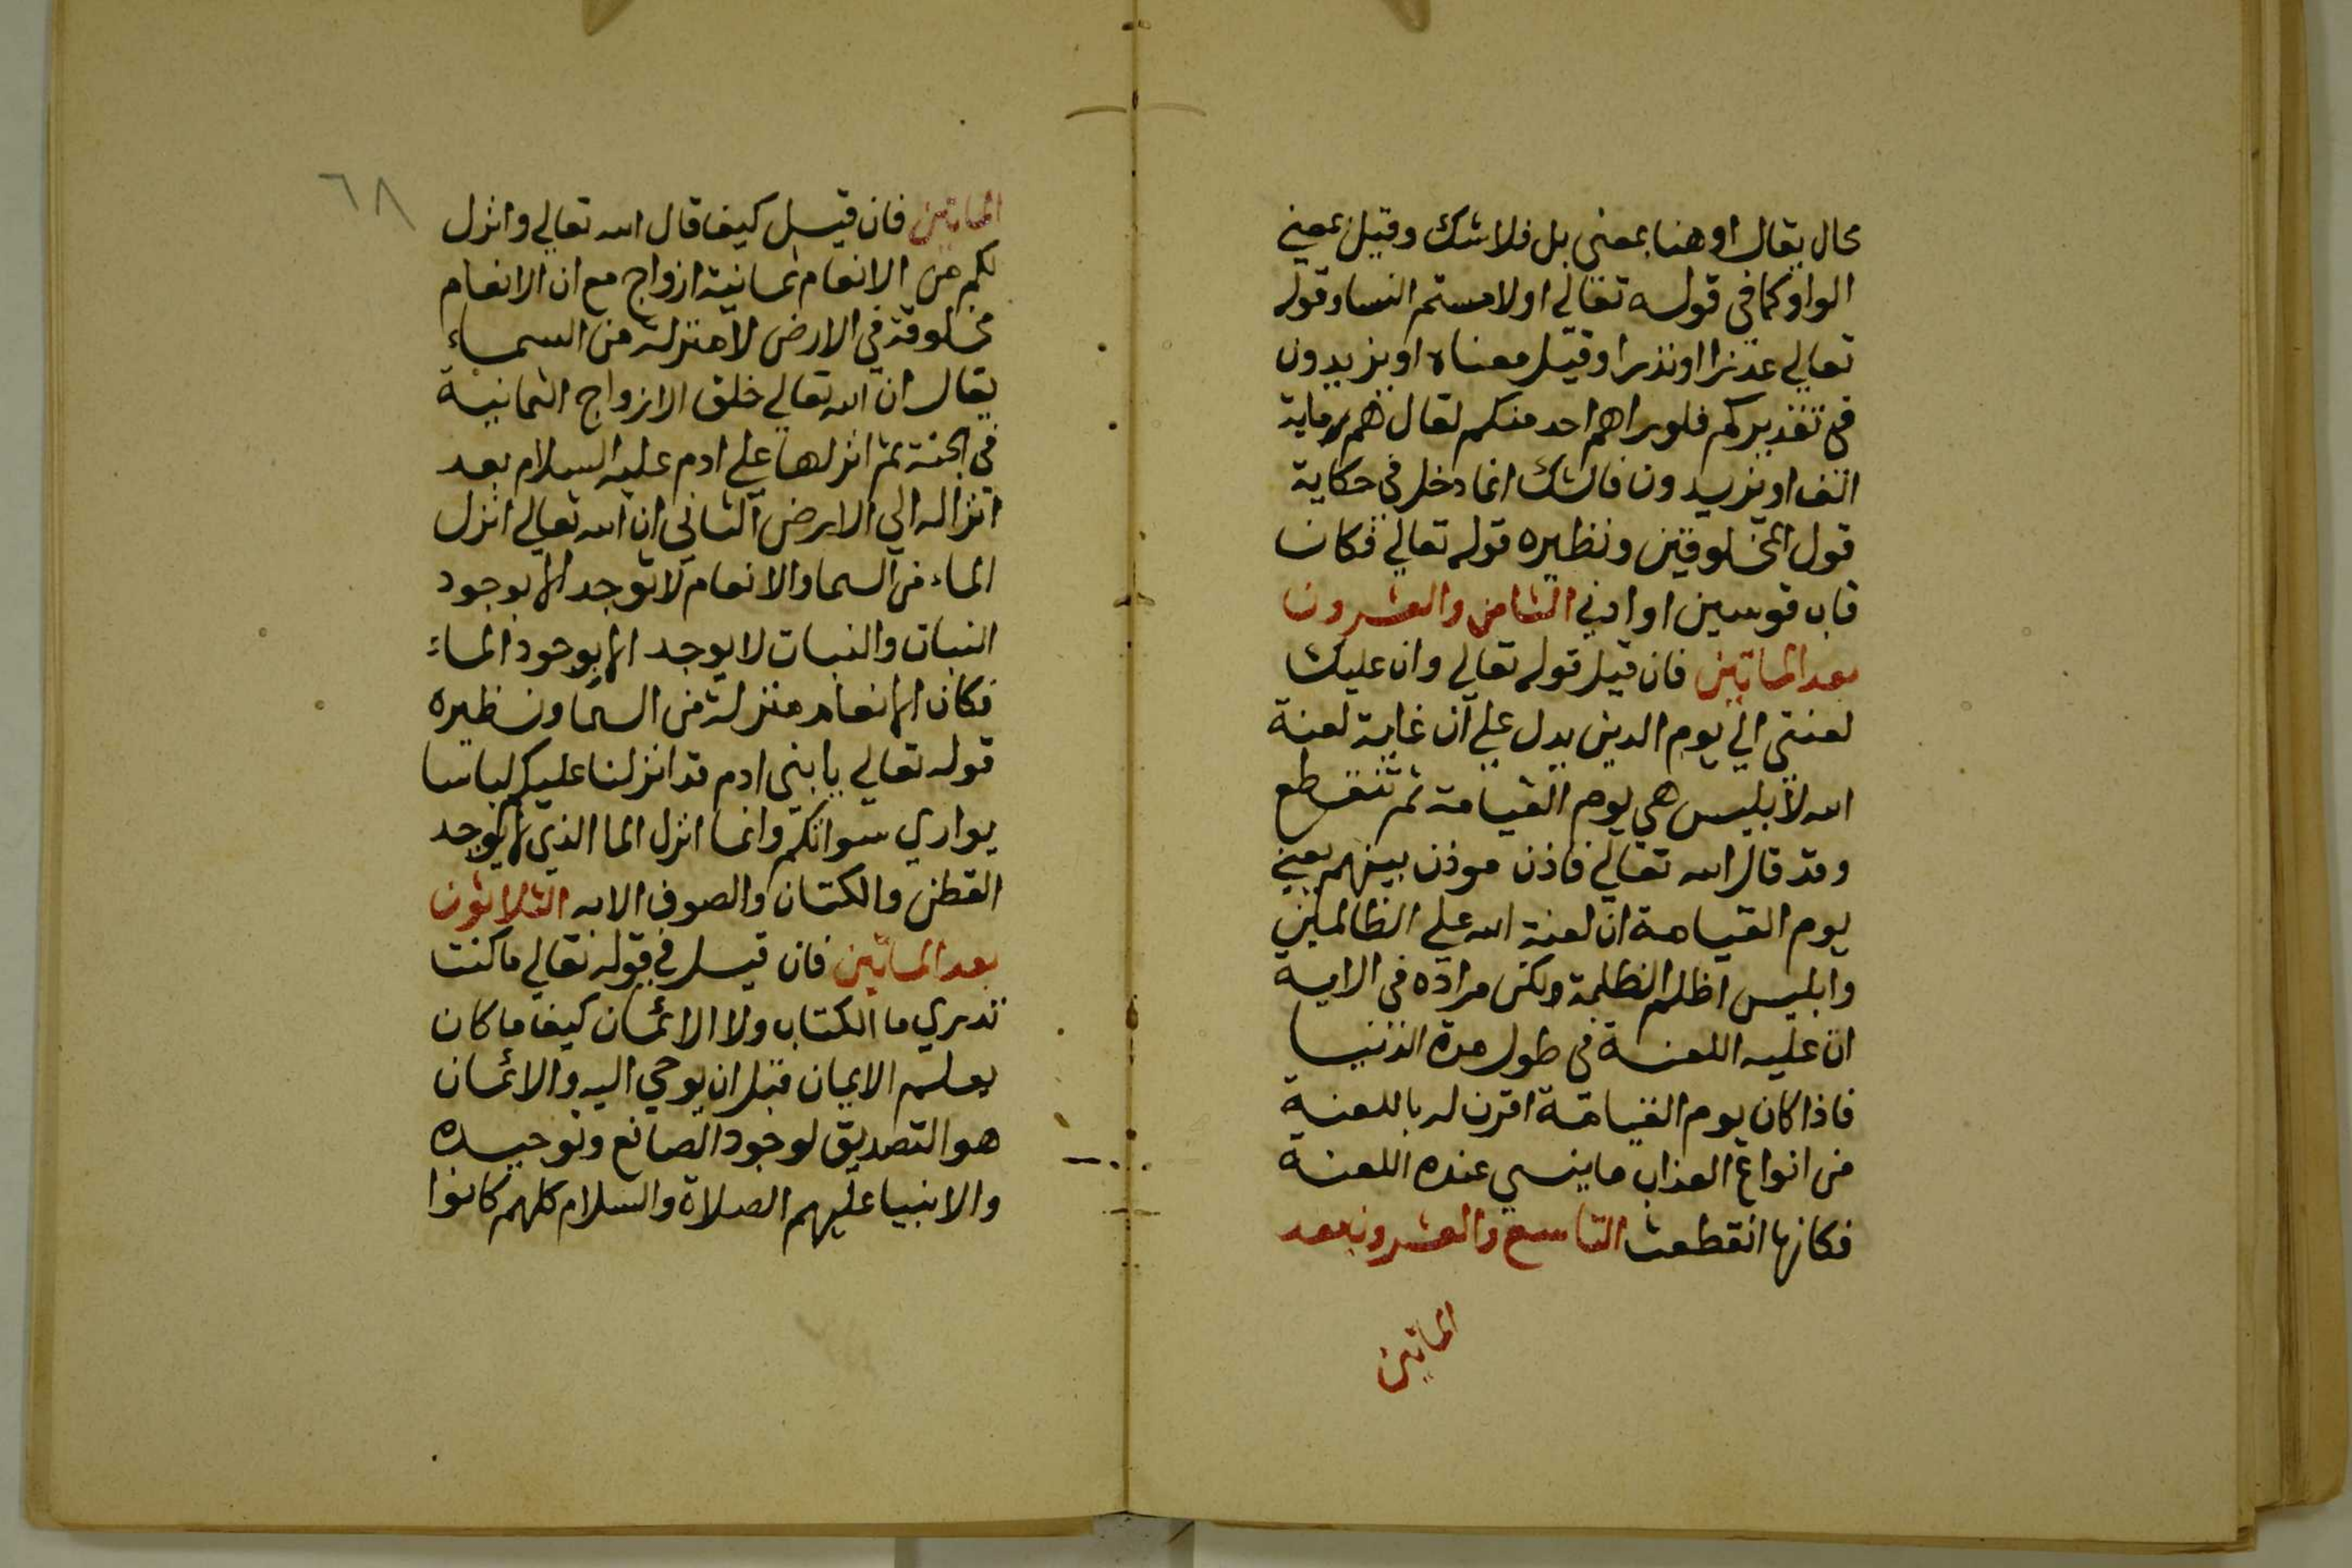 محال يقال او هنا بمعني بل فلا شك وقيل بمعني
الواو كما في قوله تعالي او لامستم النسا وقوله
تعالي عذرا او نذرا وقيل معناه او يزيدون
في تقديركم فلو راهم احد منكم لقال هم ماية
الف او يزيدون فالشك انما دخل في حكاية
قول المخلوقين ونظيره قوله تعالي فكان
قاب قوسين او ادني الثامن والعشرون
بعد الماتين فان قيل قوله تعالي وان عليك
لعنتي الي يوم الدين يدل علي ان غاية لعنة
الله لابليس هي يوم القيامة ثم تنقطع
وقد قال الله تعالي فاذن موذن بينهم يعني
يوم القيامة ان لعنة الله علي الظالمين
وابليس اظلم الظلمة ولكن مراده في الاية
ان عليه اللعنة في طول مدة الدنيا
فاذا كان يوم القيامة اقترن له باللعنة
من انواع العذاب ما ينسي عنده اللعنة
فكانها انقطعت التاسع والعشرون بعد
الماتين
٦٨
الماتين فان قيل كيف قال الله تعالي وانزل
لكم من الانعام ثمانية ازواج مع ان الانعام
مخلوقة في الارض لا منزلة من السماء
يقال ان الله تعالي خلق الازواج الثمانية
في الجنة ثم انزلها علي ادم عليه السلام بعد
انزاله الي الارض الثاني ان الله تعالي انزل
الماء من السما والانعام لا توجد الا بوجود
النبات والنبات لا يوجد الا بوجود الماء
فكان الانعام منزلة من السما ونظيره
قوله تعالي يا بني ادم قد انزلنا عليكم لباسا
يواري سواتكم وانما انزل الما الذي لا يوجد
القطن والكتان والصوف الا به الثلاثون
بعد الماتين فان قيل في قوله تعالي ما كنت
تدري ما الكتاب ولا الائمان كيف ما كان
يعلم الايمان قبل ان يوحي اليه والائمان
هو التصديق لوجود الصانع وتوحيده
والانبيا عليهم الصلاة والسلام كلهم كانوا